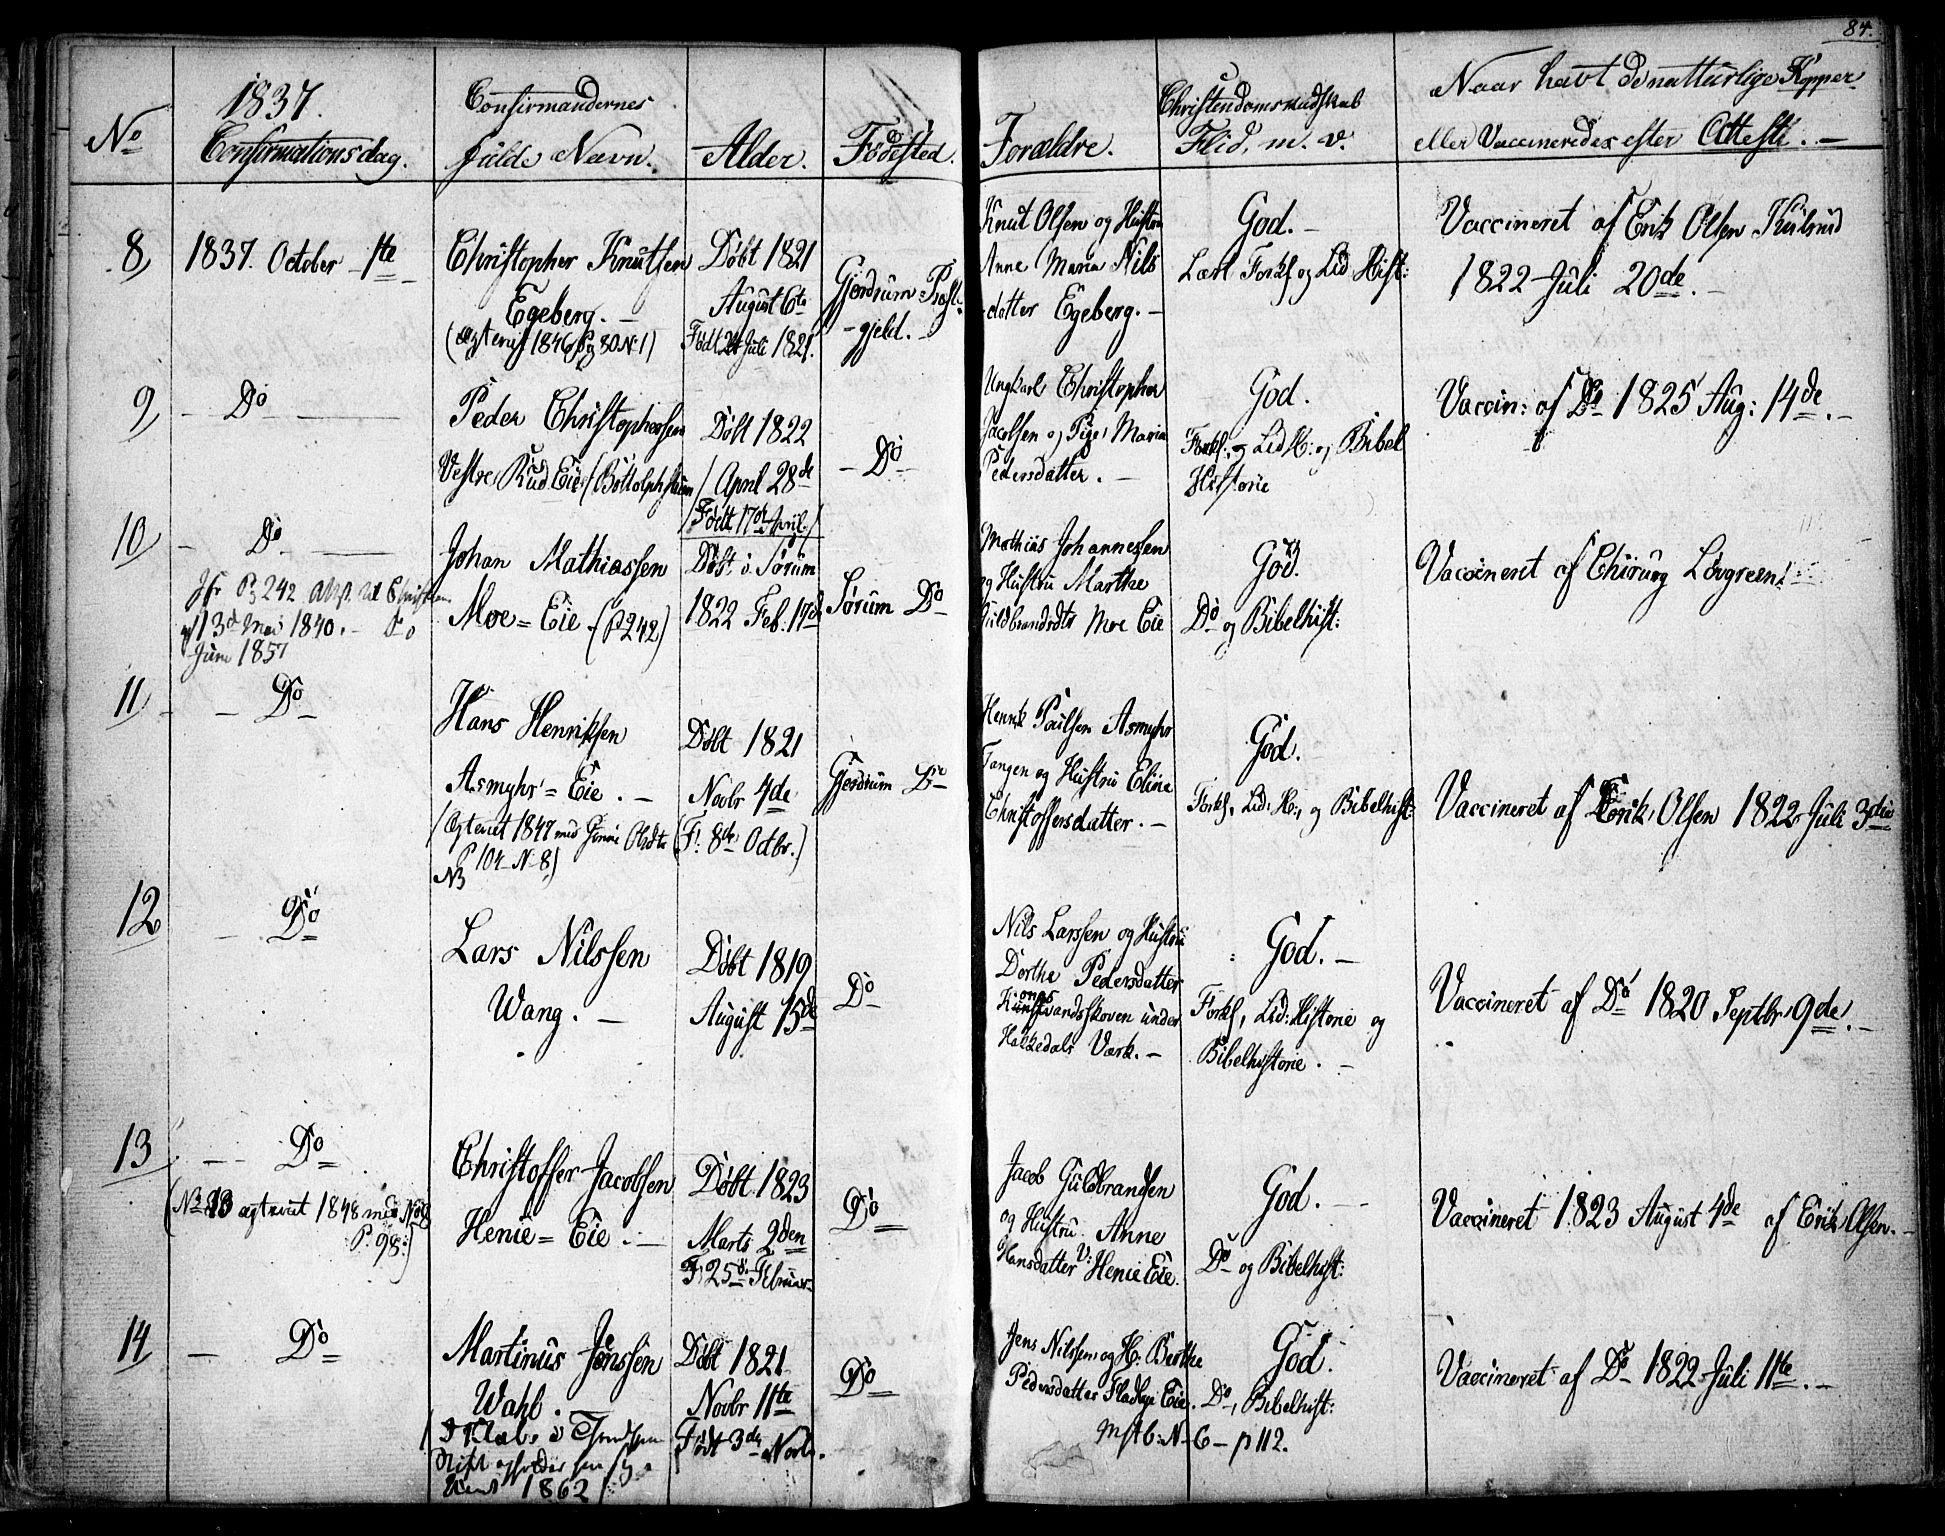 84.
No
1837.
Confirmationsdag.
Confirmandernes
fulde Navn.
Alder.
Födested.
Forældre.
Christendomskundskab
Flid, m. v.
Naar havt de natturlige Kopper
eller Vaccineredes efter Attest. –
8,
1837. October 1te
Christopher Knutsen
Egeberg. –
(ægteviet 1846 Pag 80 N. 1)
Döbt 1821
August 6te
Födt Juli 1821.
Gjerdrum Præste
-gjeld. –
Knut Olsen og Hustru
Anne Maria Nils
datter Egeberg. –
God. –
Lært Forkl og Lid Hist:
Vaccineret af Erik Olsen Kulsrud
1822 Juli 20de. –
9,
– Do –
Peder Christophersen
Vestre Rud Eie
Döbt 1822
April 28de
Födt 17de April.
– Do –
Ungkarl Christopher
Jacobsen og Pige Maria
Pedersdatter. –
God.
Forkl:, og Lid H: og Bibel
Historie
Vaccin: af Do 1825 Aug: 14de. –
10,
– Do –
Jfr Pag 242 Attest til
13de Mai 1840. – Do
Juni 1857
Johan Mathiassen
Moe = Eie – (P 242)
Döbt i Sörum
1822 Feb: 17de
Sörum Do
Mathias Johannessen
og Hustru Marthe
Guldbrandsdtr Moe Eie
God.
Do og Bibelhist:
Vaccineret af Chirurg Lövgreen
11,
– – Do –
Hans Henriksen
Asmyhr = Eie. –
(Ægteviet 1847 med Olsdtr
P 104 N. 8)
NB
Döbt 1821
Novbr 4de
(F. 8de Octbr.)
Gjerdrum Do
Henrik Paulsen Asmyhr
Tangen og Hustru Eline
Christoffersdatter. –
God.
Forkl, Lid: H:, og Bibelhist:
Vaccineret af Erik Olsen 1822 Juli 3die
12,
– Do
Lars Nilssen
Wang. –
Döbt 1819
August 15de
Do
Nils Larssen og Hustru
Dorthe Pedersdatter
under
Hakkedals Værk. –
God. –
Forkl, Lid: Historie og
Bibelhistorie. –
Vaccineret af Do 1820 Septbr 9de. –
13,
– Do
ægteviet 1848 med
P. 98.)
Christoffer Jacobsen
Henie = Eie. –
Döbt 1823
Marts 2den
F. 25de Februar
Do
Jacob Guldbrandsen
og Hustru Anne
Hansdatter V: Henie Eie.
God. –
Do og Bibelhist:
Vaccineret 1823 August 4de af Erik Olsen. –
14,
– Do
Martinus Jenssen
Wahl.
1862
Döbt 1821
Novbr 11te
Födt 3de Novb.
Do
Jens Nilssen og H. Berthe
Pedersdatter Eie.
God.
Do, Bibelhist:
N– 6 – p 112.
Vaccineret af Do 1822 Juli 11te. –